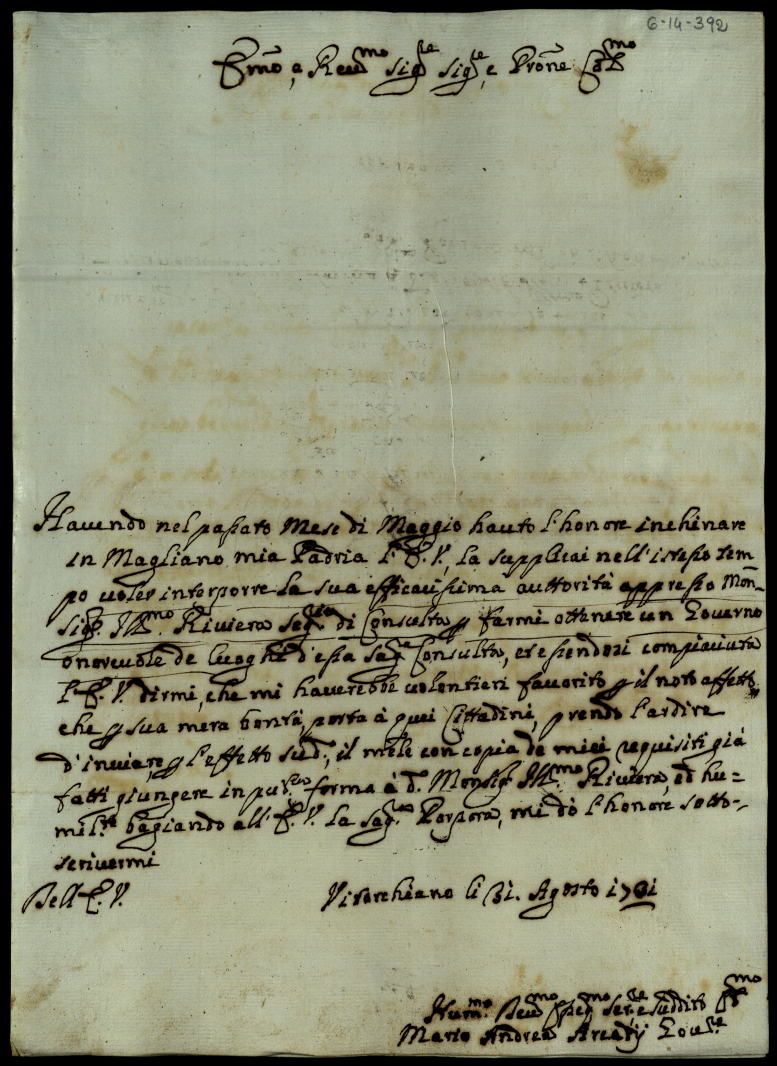 6-14-392
Em̃o, e Reu.mo Sig.re Sig.re, e Pro͠ne Col.mo
Hauendo nel passato Mese di Maggio hauto l'honore inchinare
in Magliano mia Padria l'E. V., la supplicai nell'istesso tem-
po uoler interporre la sua efficacissima auttorità appresso Mon-
sig.r Ill.mo Riviera Seg.rio di Consulta p farmi ottenere un Gouerno
onoreuole de luoghi d'essa Sag.a Consulta, et essendosi compiaciuta
l'E. V. dirmi, che mi hauerebbe uolontieri fauorito p il noto affetto,
che p sua mera bontà, porta à quei Cittadini, prendo l'ardire
d'inuiare, p l'effetto sud.o, il mele con copia de miei requisiti già
fatti giungere in pub.ca forma à d.o Monsig.r Ill.mo Riviera, ed hu=
mil.te bagiando all'E. V. la Sag.ra Porpora, mi dò l'honore sotto-
scriuermi
Dell'E. V.
Vitorchiano li 31. Agosto 1701
Hum.mo Deu.mo Ser.re e suddito
Mario Andrea Gou.re